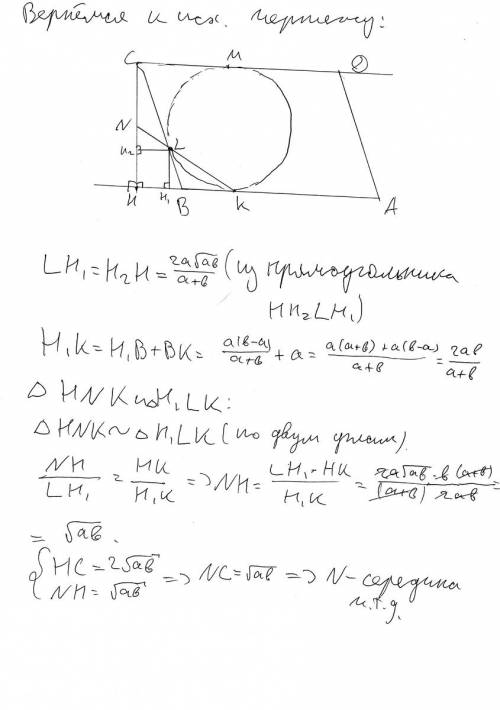 Вернёмся к исх. чертежу:
C M D
N
H₂ L
H H₁ B K A
LH₁ = H₂H = 2a√ab / a+b (из прямоугольника
HH₂LH₁)
H₁K = H₁B + BK = a(b-a) / a+b + a = a(a+b) + a(b-a) / a+b = 2ab / a+b
△ HNK и △H₁LK:
△HNK ~ △H₁LK (по двум углам).
NH / LH₁ = HK / H₁K => NH = LH₁ · HK / H₁K = 2a√ab · b (a+b) / (a+b) 2ab =
= √ab .
{ HC = 2√ab
NH = √ab => NC = √ab => N - середина
ч.т.д.